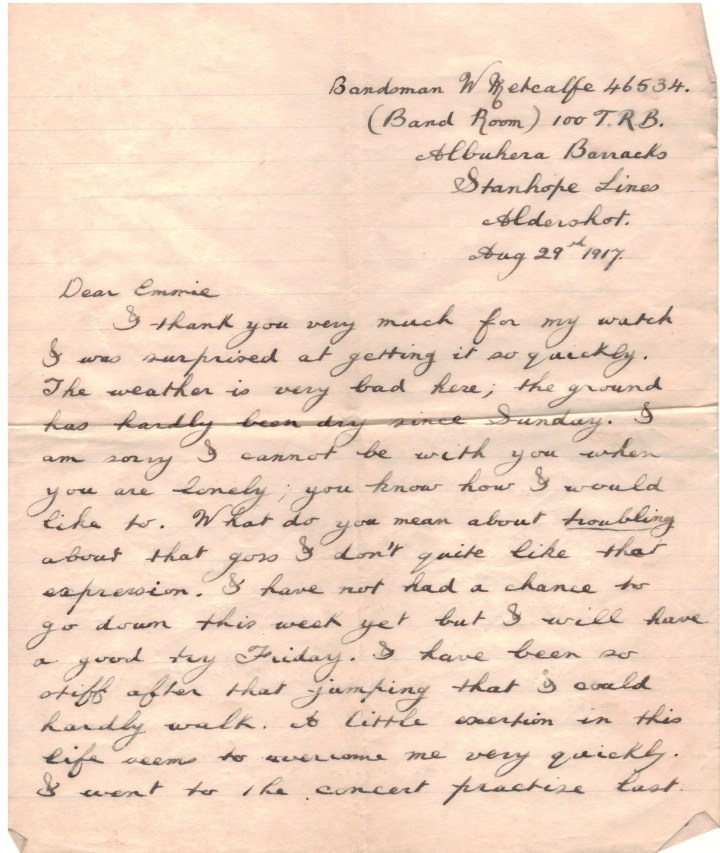 Bandsman W Metcalfe 46534.
(Band Room) 100 T.R.B.
Albuhera Barracks
Stanhope Lines
Aldershot.
Aug 29th 1917.
Dear Emmie
I thank you very much for my watch
I was surprised at getting it so quickly.
The weather is very bad here; the ground
has hardly been dry since Sunday. I
am sorry I cannot be with you when
you are lonely; you know how I would
like to. What do you mean about troubling
about that goss I don't quite like that
expression. I have not had a chance to
go down this week yet but I will have
a good try Friday. I have been so
stiff after that jumping that I could
hardly walk. A little exertion in this
life seems to overcome me very quickly.
I went to the concert practise last.